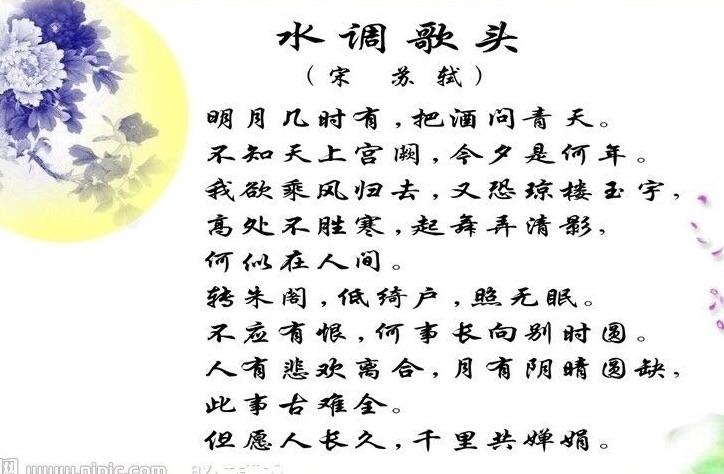 水调歌头
（宋 苏轼）
明月几时有,把酒问青天。
不知天上宫阙,今夕是何年。
我欲乘风归去,又恐琼楼玉宇,
高处不胜寒,起舞弄清影,
何似在人间。
转朱阁,低绮户,照无眠。
不应有恨,何事长向别时圆。
人有悲欢离合,月有阴晴圆缺,
此事古难全。
但愿人长久,千里共婵娟。
网 www.nipic.com